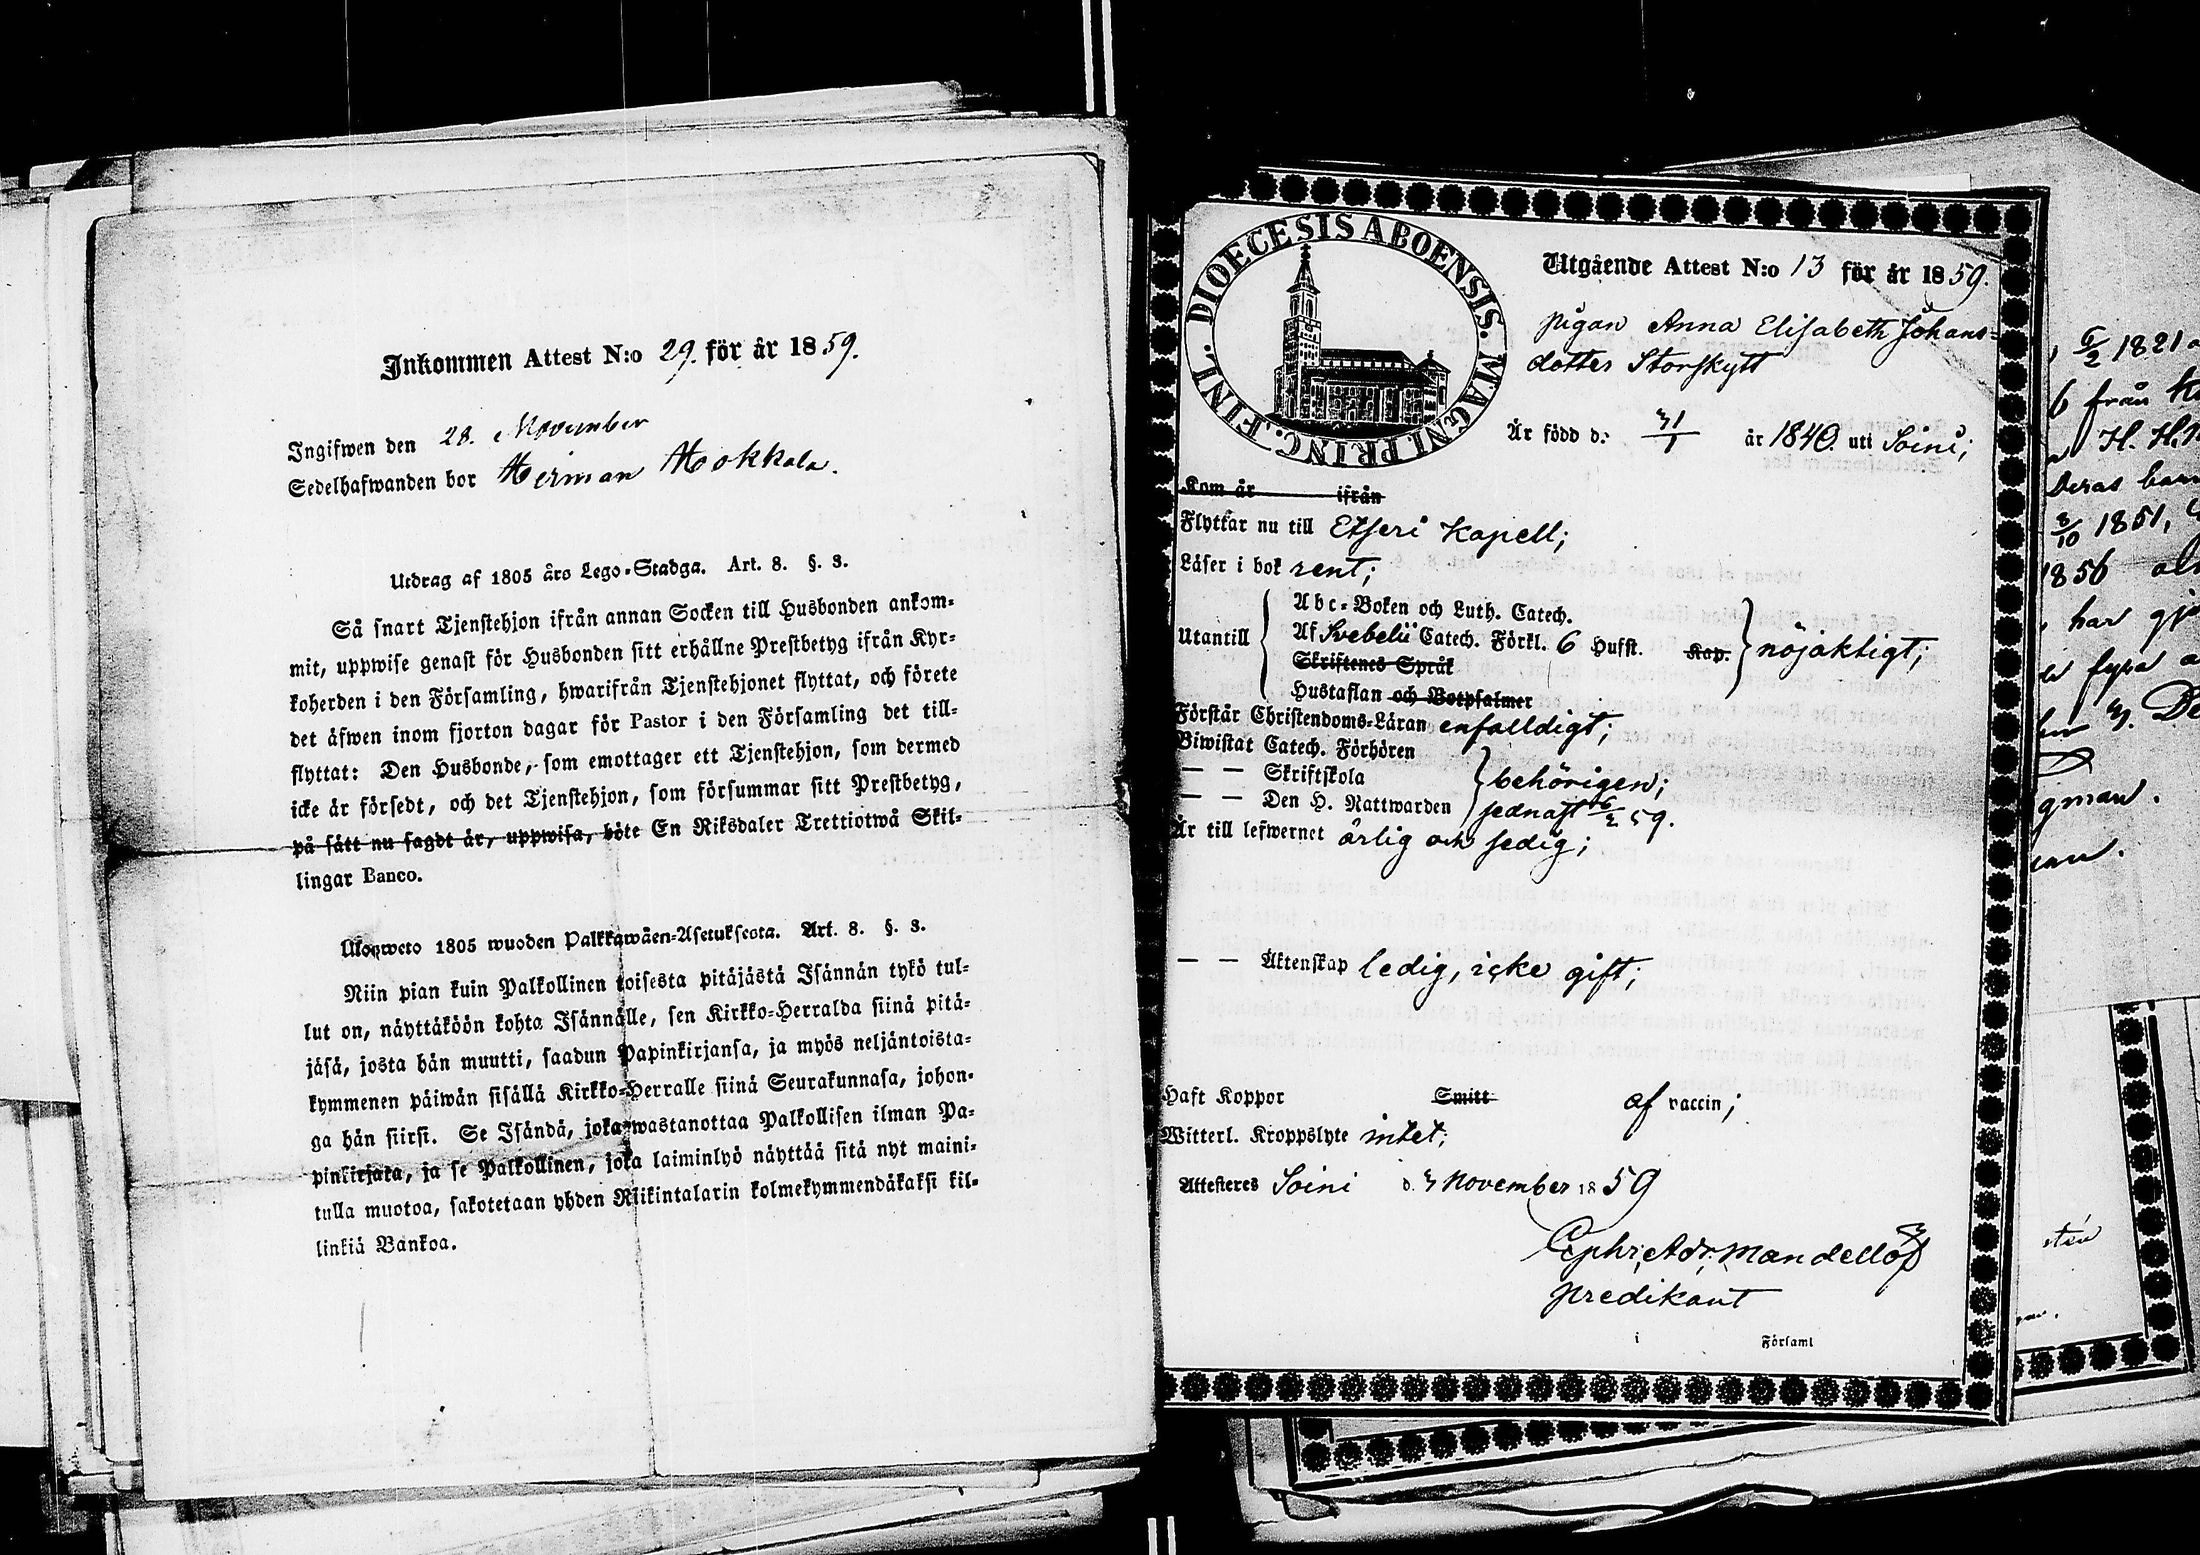 Inkommen Attest N:o 29. för år 1859.
Ingifwen den 28. November
Sedelhafwanden bor Herman Hokkala.
Utdrag af 1805 års Lego-Stadga. Art. 8. §. 3.
Så snart Tjenstehjon ifrån annan Socken till Husbonden ankom-
mit, uppwise genast för Husbonden sitt erhållne Prestbetyg ifrån Kyr-
koherden i den Församling, hwarifrån Tjenstehjonet flyttat, och förete
det äfwen inom fjorton dagar för Pastor i den Församling det till-
flyttat: Den Husbonde, som emottager ett Tjenstehjon, som dermed
icke är försedt, och det Tjenstehjon, som försummar sitt Prestbetyg,
på sätt nu sagdt är, uppwisa, böte En Riksdaler Trettiotwå Skil-
lingar Banco.
Ulosweto 1805 wuoden Palkkawäen-Asetuksesta. Art. 8. §. 3.
Niin pian kuin Palkollinen toisesta pitäjästä Isännän tykö tul-
lut on, näyttäköön kohta Isännälle, sen Kirkko-Herralda siinä pitä-
jäsä, josta hän muutti, saadun Papinkirjansa, ja myös neljäntoista-
kymmenen päiwän sisällä Kirkko-Herralle siinä Seurakunnasa, johon-
ga hän siirsi. Se Isändä, joka wastanottaa Palkollisen ilman Pa-
pinkirjata, ja se Palkollinen, joka laiminlyö näyttää sitä nyt maini-
tulla muotoa, sakotetaan yhden Riikintalarin kolmekymmendäkaksi kil-
linkiä Bankoa.
DIOECESIS ABOENSIS. MAGNI PRINC. FINL.
Utgående Attest N:o 13 för år 1859.
pigan Anna Elisabeth Johans-
dotter Storskytt
Är född d: 31/1 år 1840. uti Soini;
Kom år ifrån
Flyttar nu till Etseri Kapell;
Läser i bok rent;
Abc-Boken och Luth. Catech.
Utantill Af Svebelii Catech. Förkl. 6 Hufst. Kap. nöjaktigt;
Skriftenes Språk
Hustaflan och Botpsalmer
Förstår Christendoms-Läran enfalldigt;
Biwistat Catech. Förhören
— — Skriftskola behörigen;
— — Den H. Nattwarden sednast 6/2 59.
Är till lefwernet ärlig och sedig;
— — Äktenskap ledig, icke gift;
Haft Koppor Smitt af vaccin;
Witterl. Kroppslyte intet;
Attesteres Soini d. 3 November 1859
Ephr. Adr. Mandellöf
predikant
i Församl
6/2 1821
6 från
H. H.
Deras barn
8/10 1851,
1856
har
fyra